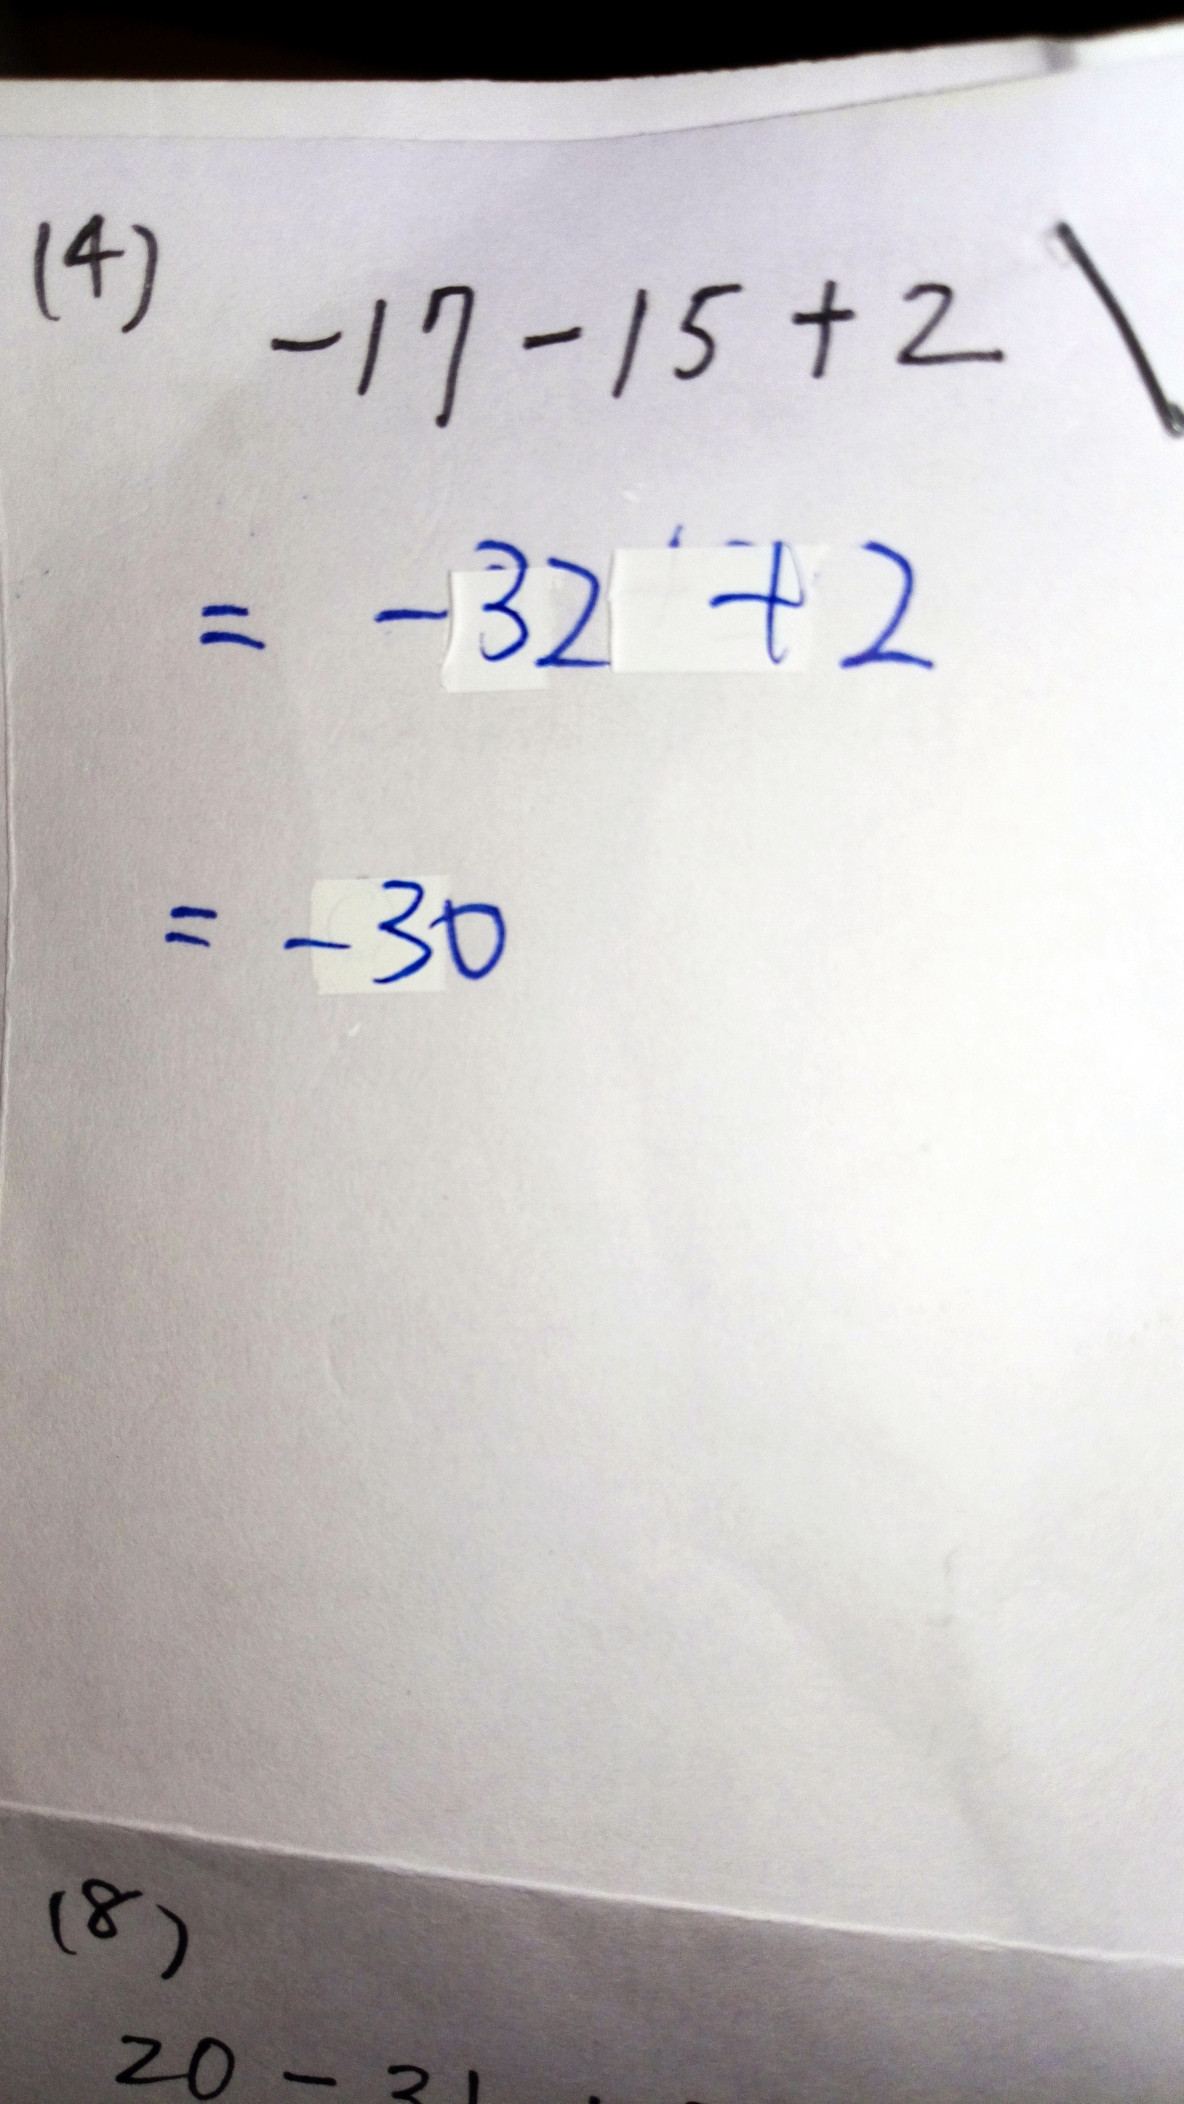 (4)
-17-15+2
= -32+2
= -30
(8)
20-31